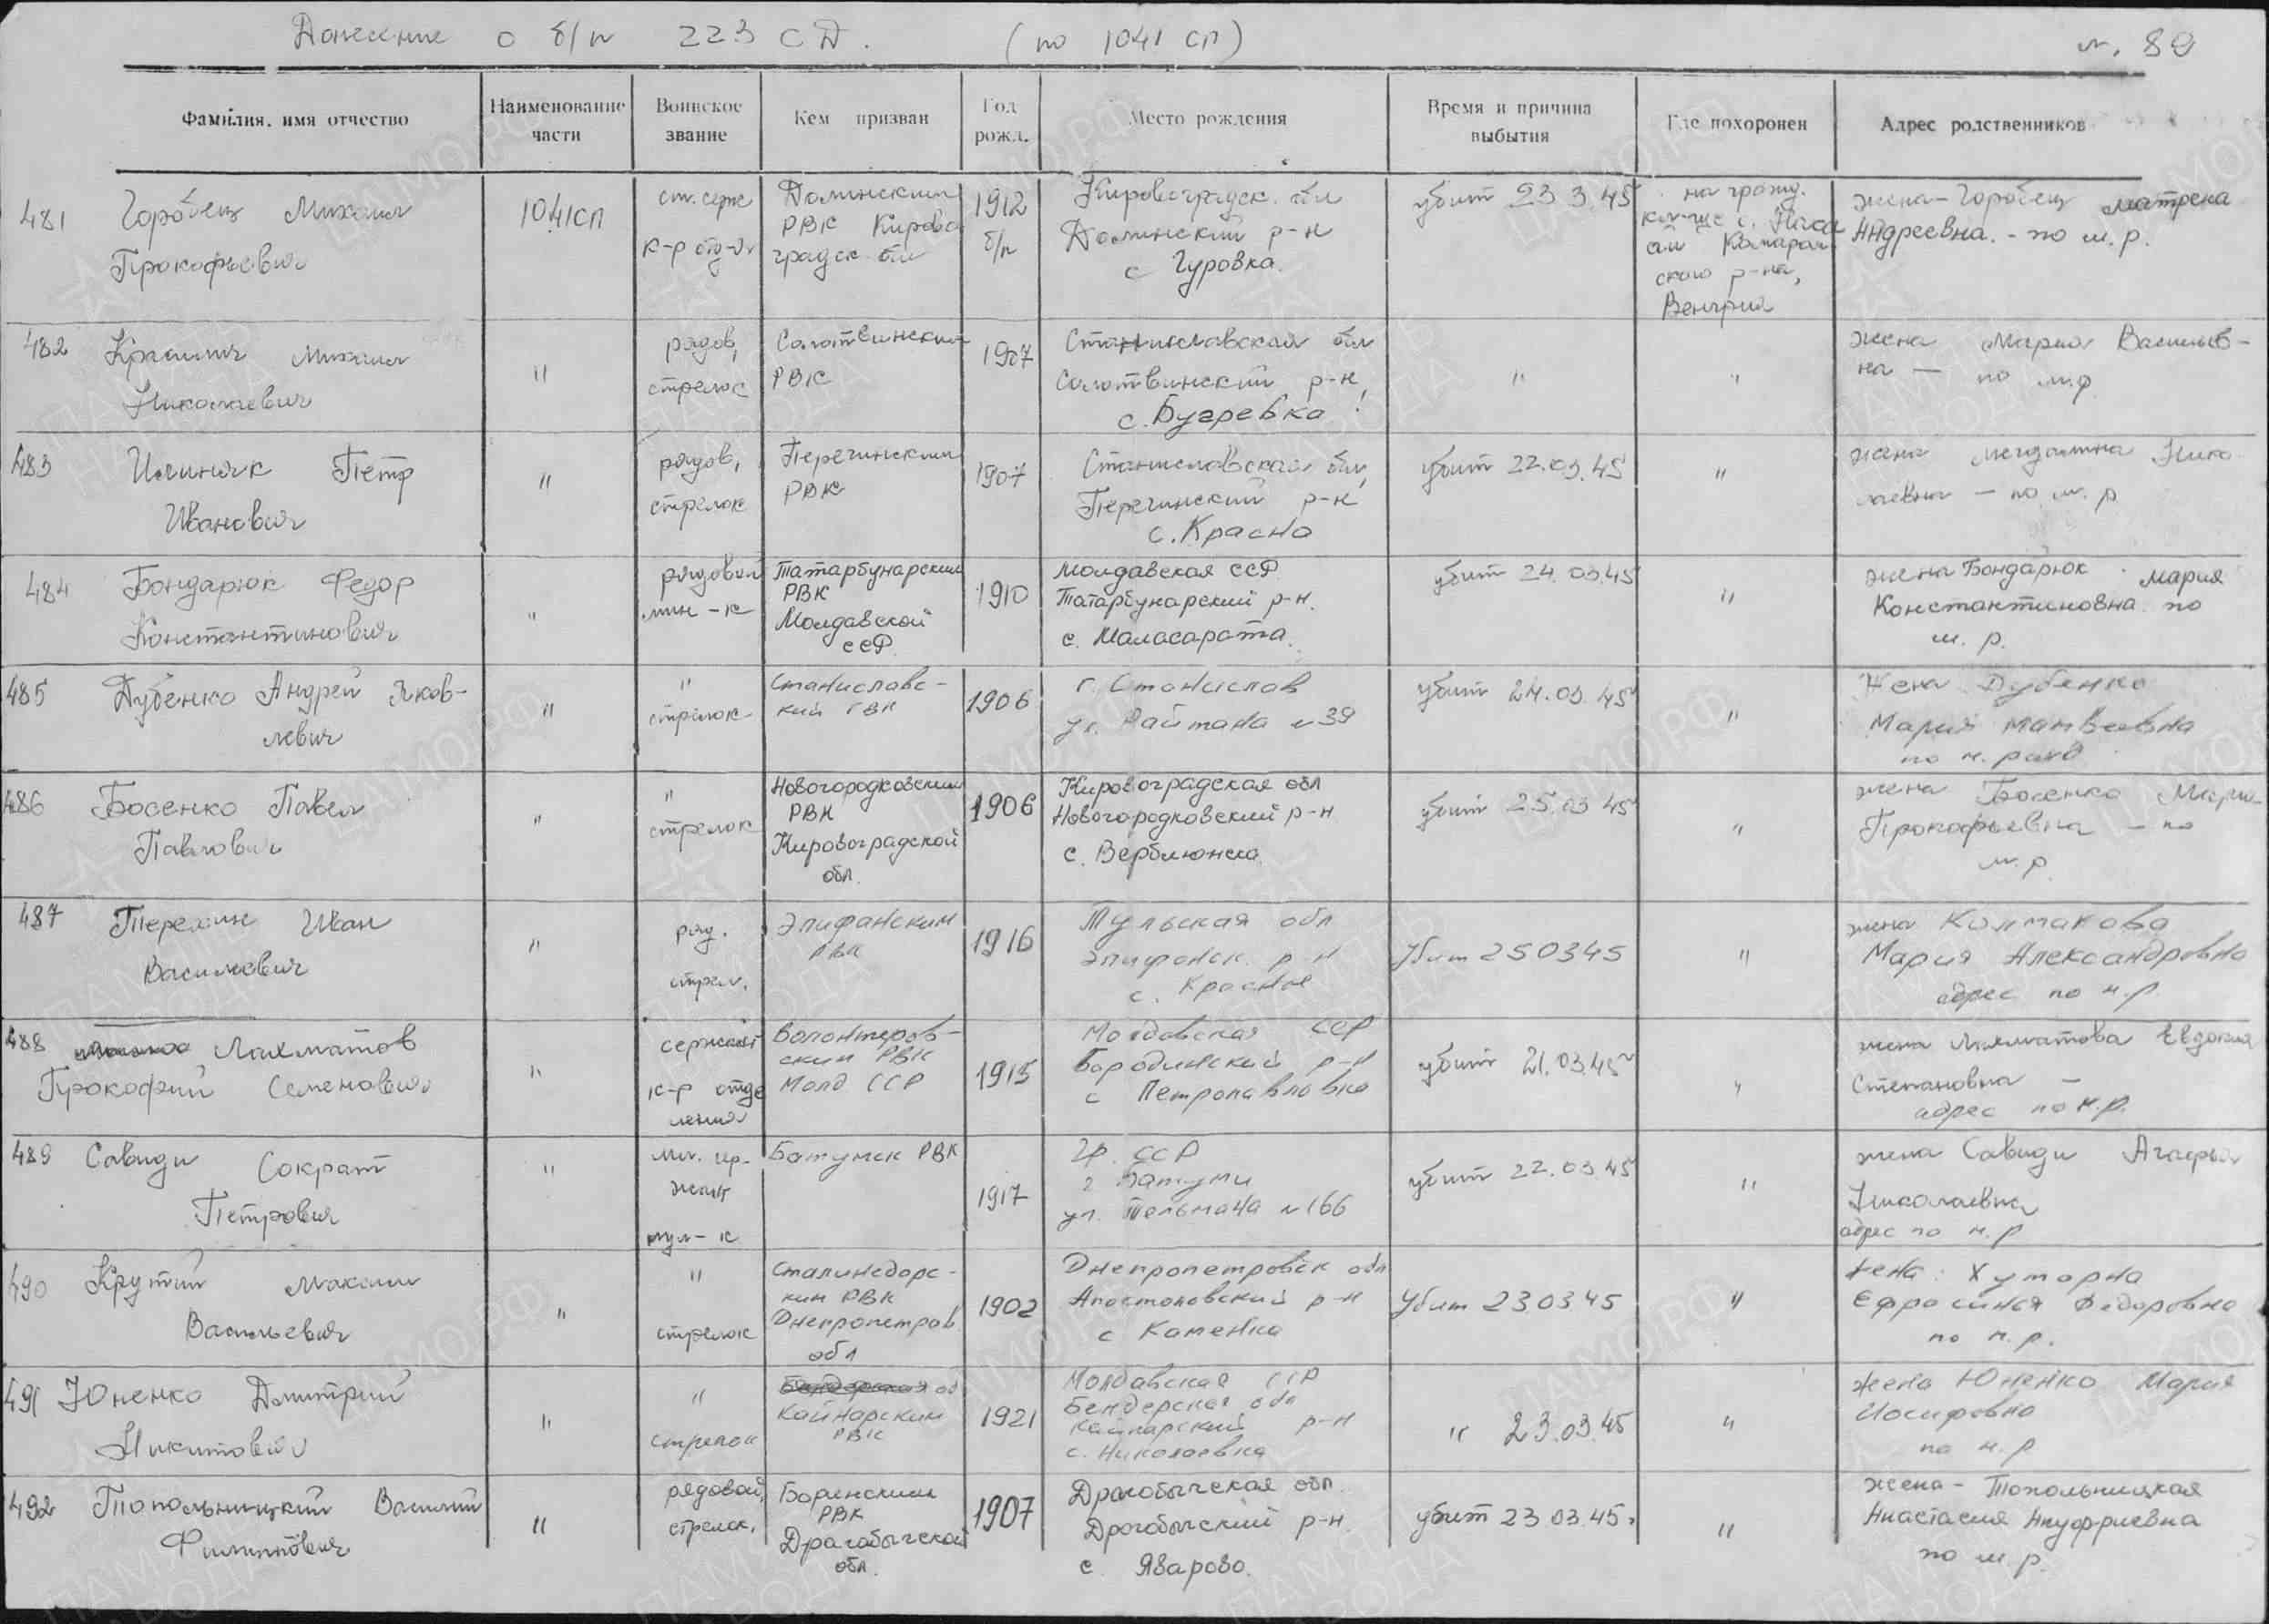 Донесение о б/п 223 СД. (по 1041 сп) л. 80
Фамилия, имя отчество
Наименование части
Воинское звание
Кем призван
Год рожд.
Место рождения
Время и причина выбытия
Где похоронен
Адрес родственников
481 Горобец Михаил
Прокофьевич
1041сп
ст. серж
к-р отд-я
Долинским
РВК Кирово
градск обл
1912
б/п
Кировоградск. обл
Долинский р-н
с Гуровка.
убит 23 3.45
на гражд.
кл-ще с.
ского р-на,
Венгрия
жена - Горобец Матрена
Андреевна. - по м. р.
482 Михаил
Николаевич
"
рядов,
стрелок
Солотвинским
РВК
1907
Станиславская обл
Солотвинский р-н,
с. Бугревка
"
"
жена Мария Василев-
на — по м.р
483 Илиняк Петр
Иванович
"
рядов,
стрелок
Перегинским
РВК
1907
Станиславская обл,
Перегинский р-н
с. Красно
убит 22.03.45
"
жена Нико
лаевна — по м. р
484 Бондарюк Федор
Константинович
"
рядовой
мин-к
Татарбунарским
РВК
Молдавской
ССР
1910
Молдавская ССР
Татарбунарский р-н.
с. Маласарата.
убит 24.03.45
"
жена Бондарюк Мария
Константиновна по
м. р.
485 Дубенко Андрей Яков-
левич
"
"
стрелок
Станиславс-
ким ГВК
1906
г. Станислав
ул. Райтана №39
убит 24.03.45
"
Жена Дубенко
Мария Матвеевна
по м. рожд
486 Босенко Павел
Павлович
"
"
стрелок
Новогородковским
РВК
Кировоградской
обл.
1906
Кировоградская обл
Новогородковский р-н
с. Верблюжка
убит 25.03.45
"
жена Босенко Мария
Прокофьевна — по
м. р.
487 Терехин Иван
Василевич
"
ряд.
стрел.
Эпифанским
РВК
1916
Тульская обл
Эпифанск. р-н
с. Красное
Убит 25 03 45
"
жена Колмакова
Мария Александровна
адрес по м.р.
488 Лахматов
Прокофий Семенович
"
сержант
к-р отде
ления
Волонтеров-
ским РВК
Молд ССР
1915
Молдовская ССР
Бородинский р-н
с Петропавловка
убит 21.03.45
"
жена Лахматова Евдокия
Степановна —
адрес по м.р.
489 Савиди Сократ
Петрович
"
мл. сер-
жант
пул-к
Батумск РВК
1917
Гр. ССР
г Батуми
ул. Тельмана №166
убит 22.03.45
"
жена Савиди Агафья
Николаевна
адрес по м. р
490 Крутий Максим
Васильевич
"
"
стрелок
Сталиндорс-
ким РВК
Днепропетров
обл
1902
Днепропетровск обл
Апостоловский р-н
с Каменка
Убит 23 03 45
"
жена: Хуторна
Ефросиния Федоровна
по м. р.
491 Юненко Дмитрий
Никитович
"
"
стрелок
Бендерская об
Кайнарским
РВК
1921
Молдавская ССР
Бендерская обл
Кайнарский р-н
с. Николаевка
" 23.03.45
"
жена Юненко Мария
Иосифовна
по м. р
492 Топольницкий Василий
Филиппович
"
рядовой,
стрелок.
Боринским
РВК
Драгобычской
обл.
1907
Драгобычская обл.
Дрогобычский р-н.
с. Яварово.
убит 23.03.45.
"
жена - Топольницкая
Анастасия Ануфриевна
по м. р.